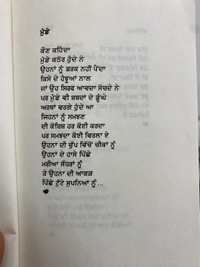 ਮੁੰਡੇ
ਕੌਣ ਕਹਿੰਦਾ
ਮੁੰਡੇ ਕਠੋਰ ਹੁੰਦੇ ਨੇ
ਉਹਨਾਂ ਨੂੰ ਫ਼ਰਕ ਨਹੀਂ ਪੈਂਦਾ
ਕਿਸੇ ਦੇ ਹੰਝੂਆਂ ਨਾਲ
ਜਾਂ ਉਹ ਸਿਰਫ਼ ਆਵਦਾ ਸੋਚਦੇ ਨੇ
ਪਰ ਮੁੰਡੇ ਵੀ ਸ਼ਬਦਾਂ ਦੇ ਡੂੰਘੇ
ਅਰਥਾਂ ਵਰਗੇ ਹੁੰਦੇ ਆ
ਜਿਹਨਾਂ ਨੂੰ ਸਮਝਣ
ਦੀ ਕੋਸ਼ਿਸ਼ ਹਰ ਕੋਈ ਕਰਦਾ
ਪਰ ਸਮਝਦਾ ਕੋਈ ਵਿਰਲਾ ਏ
ਉਹਨਾਂ ਦੀ ਚੁੱਪ ਵਿੱਚੋਂ ਚੀਕਾਂ ਨੂੰ
ਉਹਨਾਂ ਦੇ ਹਾਸੇ ਪਿੱਛੇ
ਮਰੀਆਂ ਸੱਧਰਾਂ ਨੂੰ
ਤੇ ਉਹਨਾ ਦੀ ਆਕੜ
ਪਿੱਛੇ ਟੁੱਟੇ ਸੁਪਨਿਆਂ ਨੂੰ...